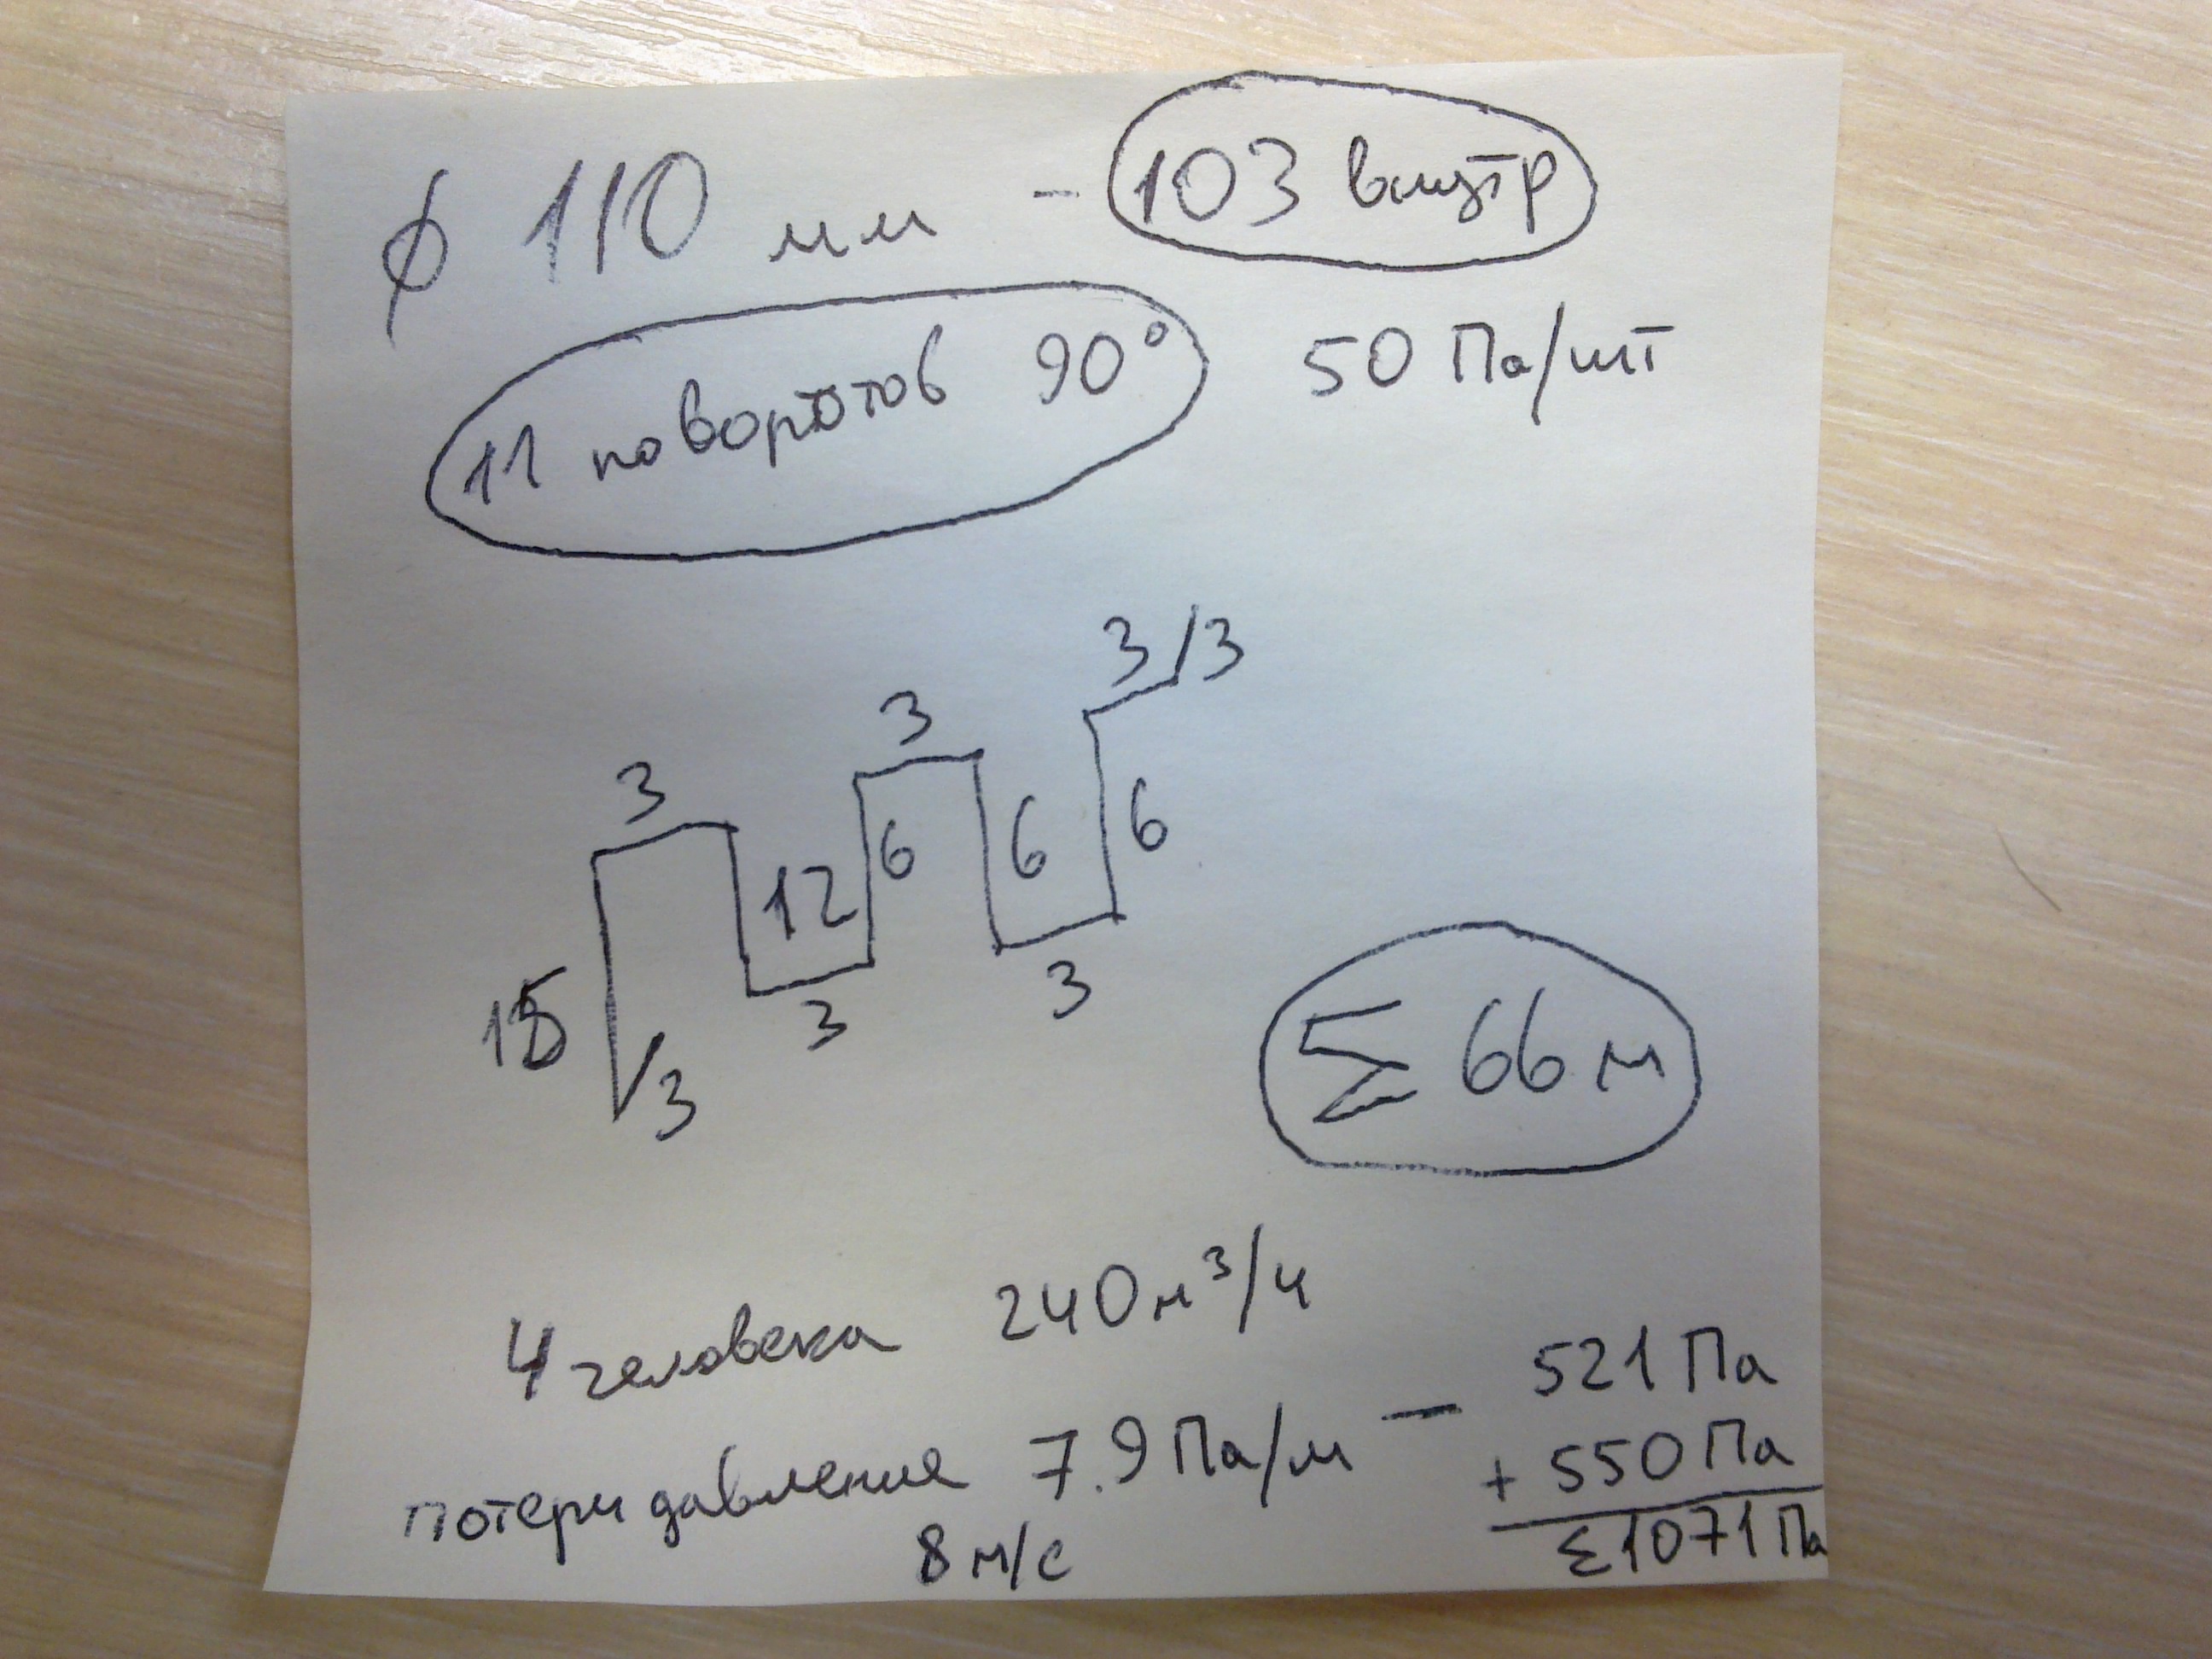 ϕ 110 мм - 103 внутр
11 поворотов 90° 50 Па/шт
3 / 3
3
3
6
6
12
6
3
3
15
3
Σ 66 м
4 человека 240 м³/ч
521 Па
потери давления 7.9 Па/м —
+ 550 Па
8 м/с
Σ1071 Па